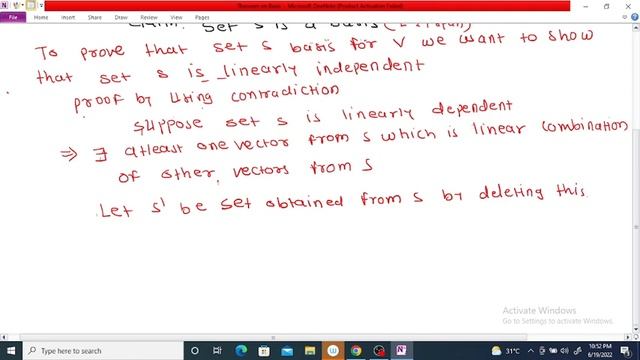 Theorem on Basis - Microsoft OneNote (Product Activation Failed)
Claim: Set S is a basis
To prove that set s basis for V we want to show
that set s is linearly independent
proof by using contradiction
suppose set s is linearly dependent
⇒ ∃ atleast one vector from s which is linear combination
of other vectors from s
Let s' be set obtained from s by deleting this
Activate Windows
Go to Settings to activate Windows.
Type here to search
31°C
ENG
10:52 PM
6/19/2022